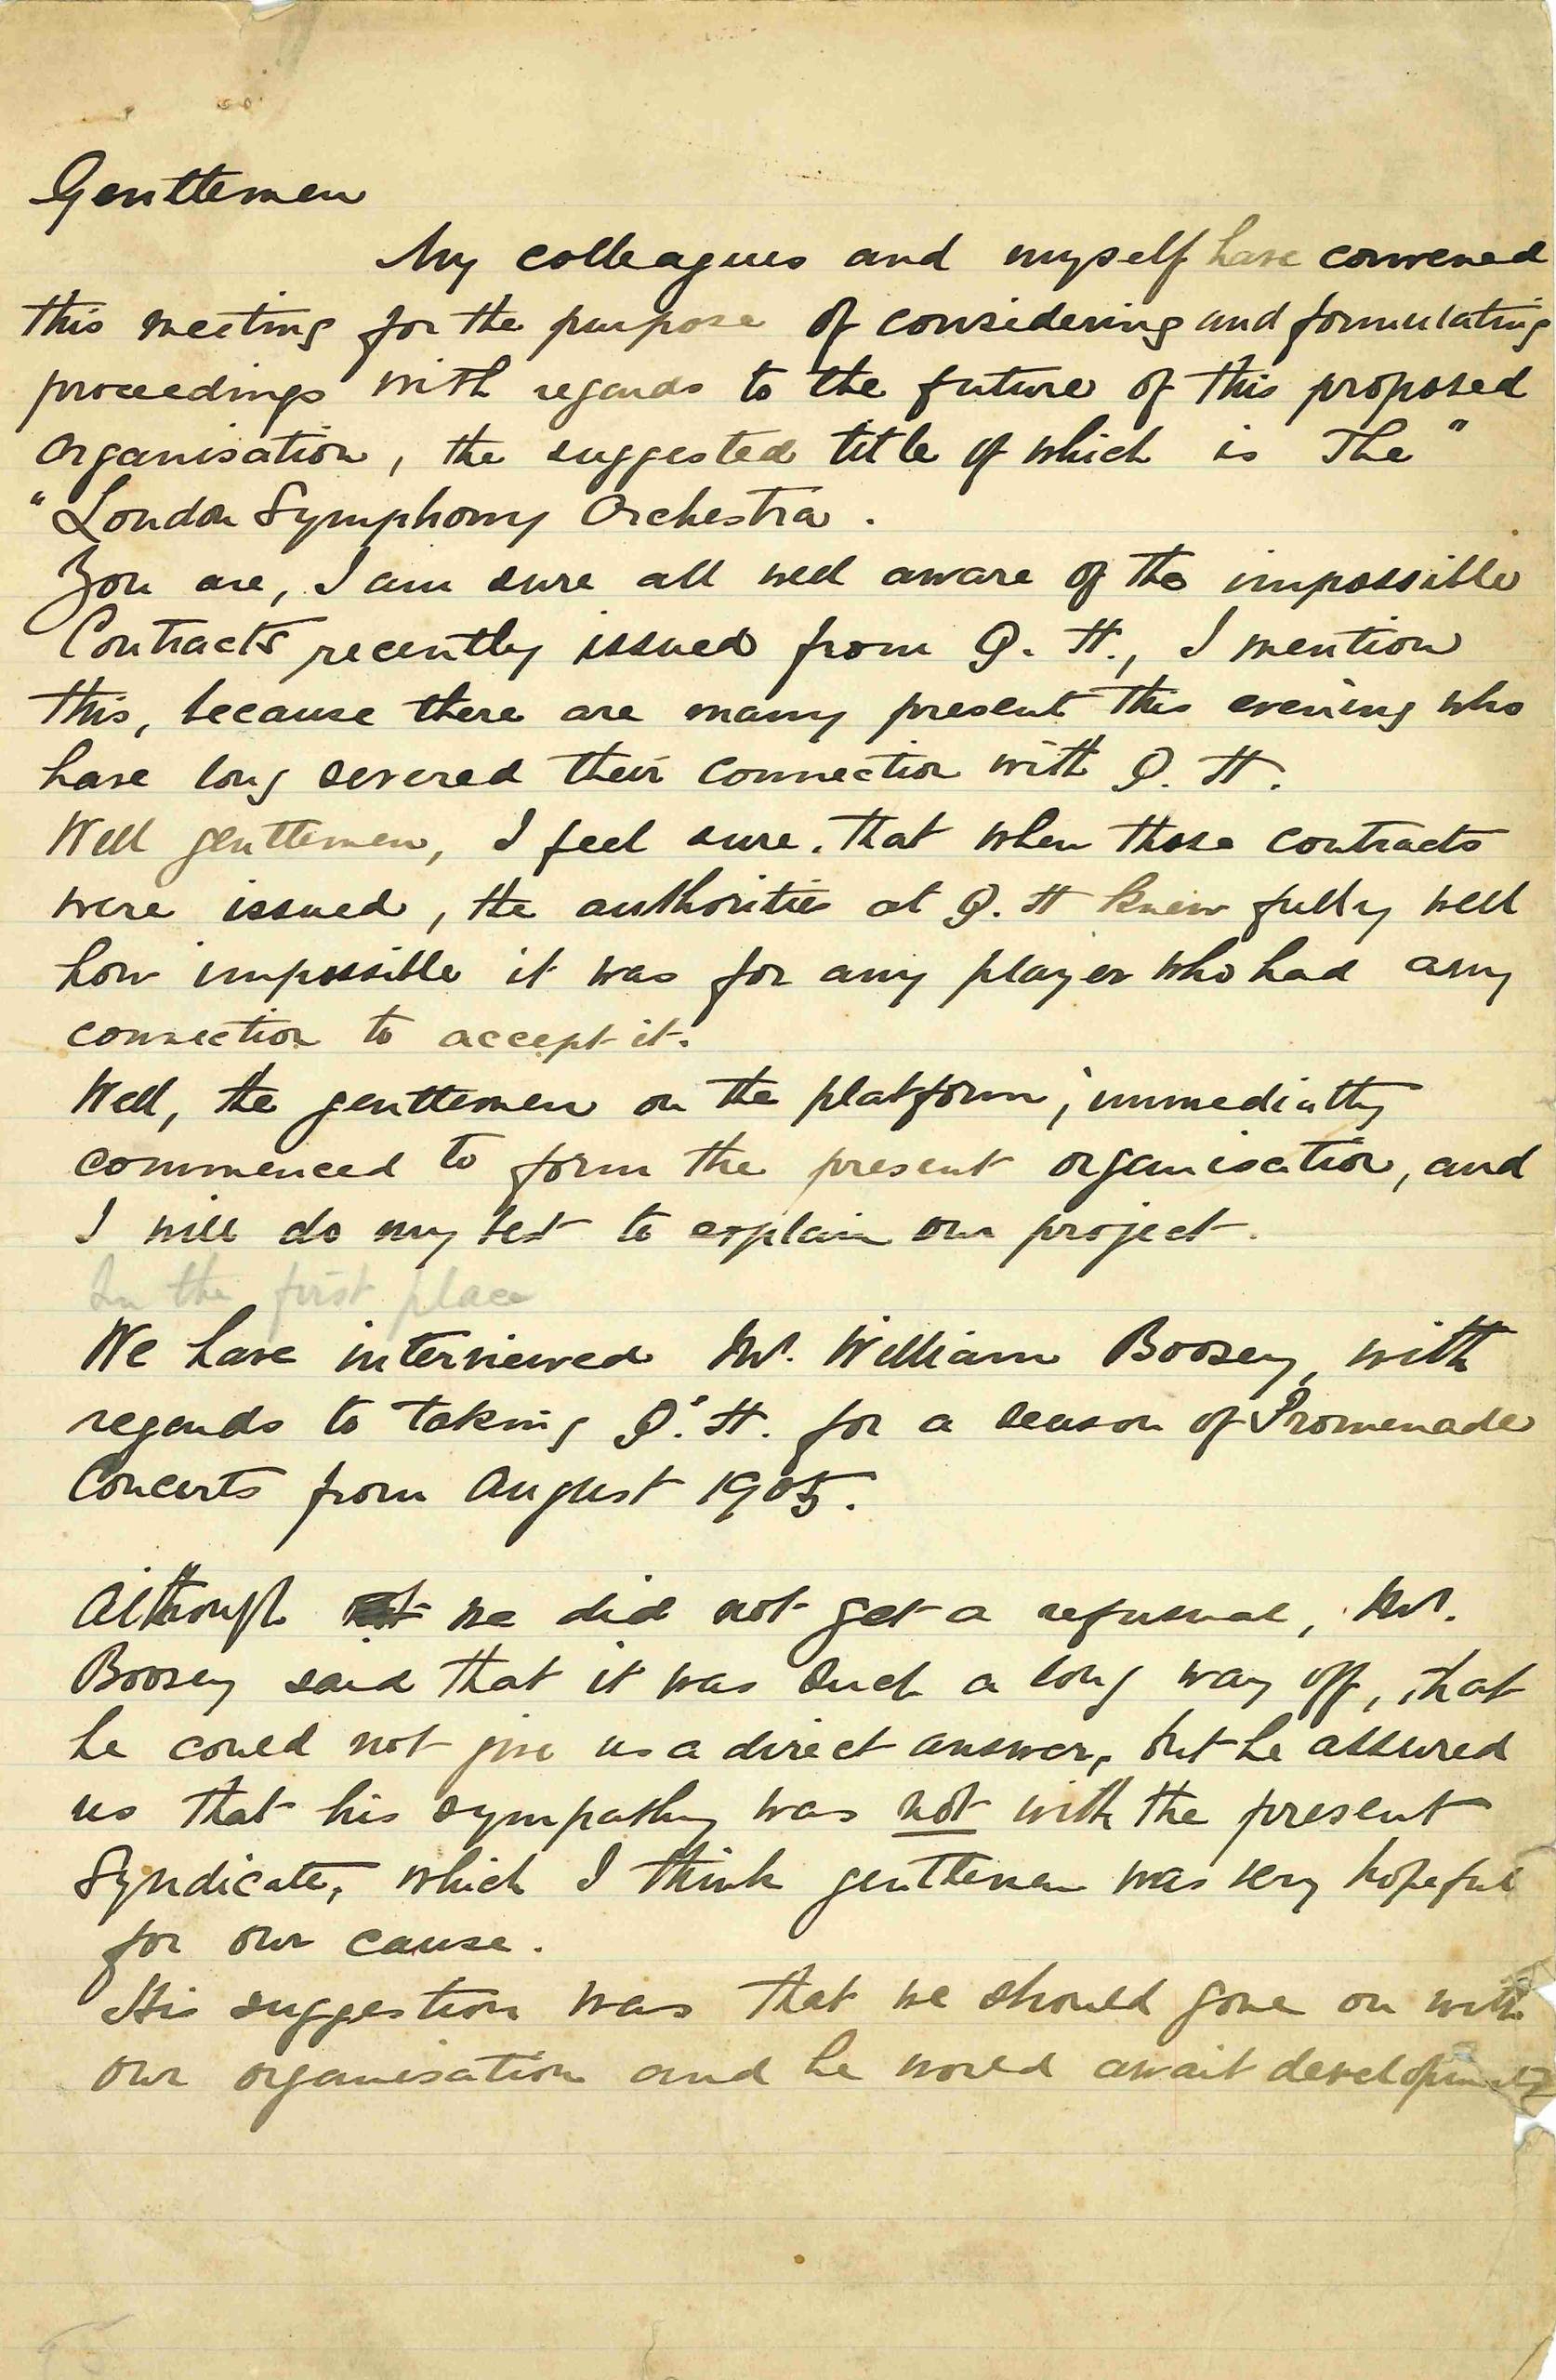 Gentlemen
My colleagues and myself have convened
this meeting for the purpose of considering and formulating
proceedings with regards to the future of this proposed
organisation, the suggested title of which is The "
"London Symphony Orchestra.
You are, I am sure all well aware of the impossible
Contracts recently issued from Q. H., I mention
this, because there are many present this evening who
have long severed their connection with Q. H.
Well gentlemen, I feel sure, that when those contracts
were issued, the authorities at Q. H knew fully well
how impossible it was for any player who had any
connection to accept it.
Well, the gentlemen on the platform, immediatly
commenced to form the present organisation, and
I will do my best to explain our project.
In the first place
We have interviewed Mr. William Boosey, with
regards to taking Q's. H. for a season of Promenade
Concerts from August 1905.
Although we did not get a refusual, Mr.
Boosey said that it was such a long way off, that
he could not give us a direct answer, but he assured
us that his sympathy was not with the present
Syndicate, which I think gentlemen was very hopeful
for our cause.
His suggestion was that we should gone on with
our organisation and he would await developments